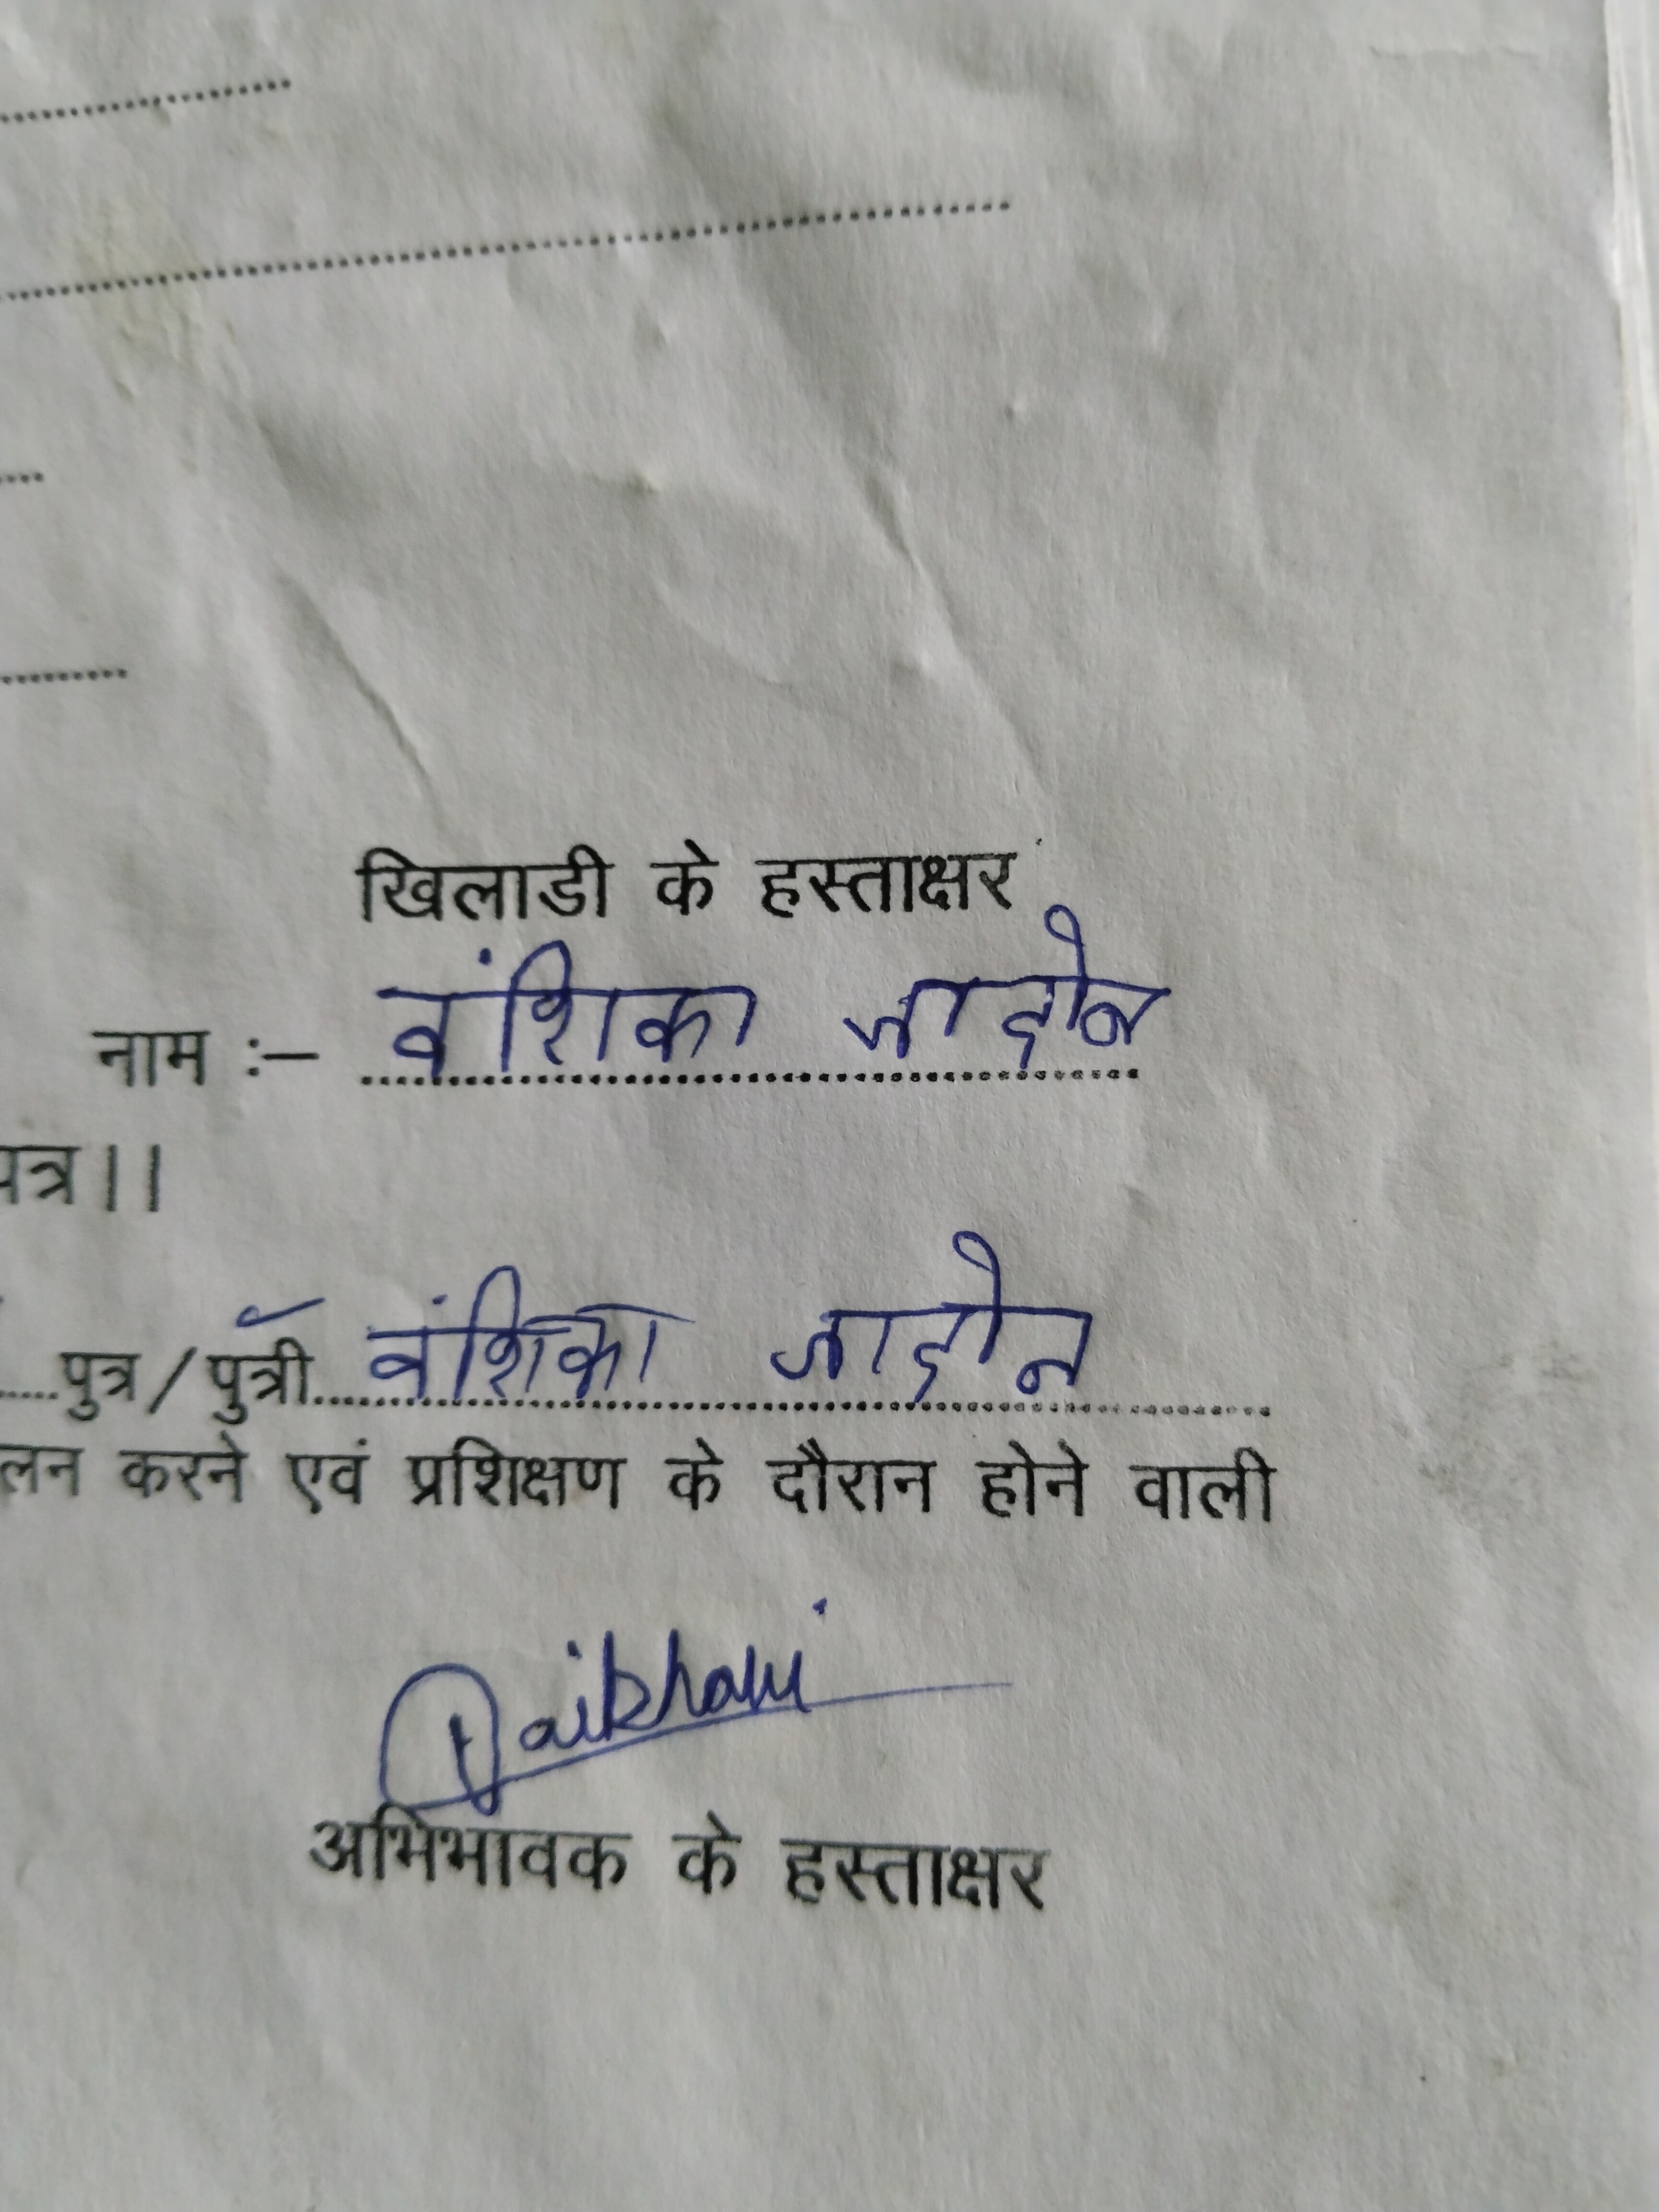 खिलाडी के हस्ताक्षर
नाम :– वंशिका जादोन
पत्र।।
पुत्र/पुत्री वंशिका जादोन
लन करने एवं प्रशिक्षण के दौरान होने वाली
अभिभावक के हस्ताक्षर